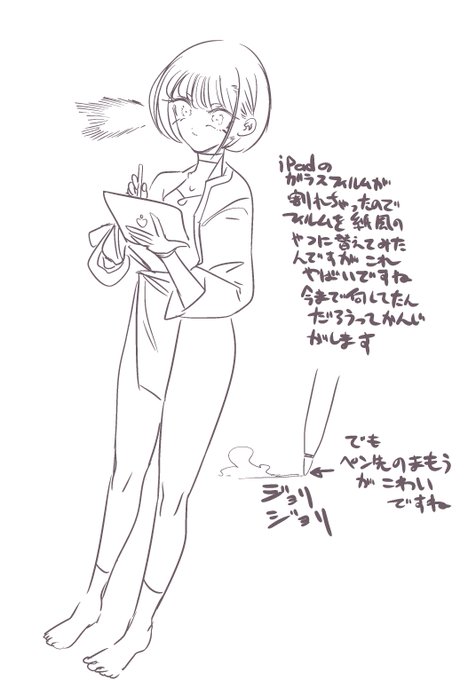 iPadの
ガラスフィルムが
割れちゃったので
フィルムを紙風の
やつに替えてみた
んですがこれ
やばいですね
今まで何してたん
だろうってかんじ
がします
でも
ペン先のまもう
がこわい
ですね
ジョリ
ジョリ